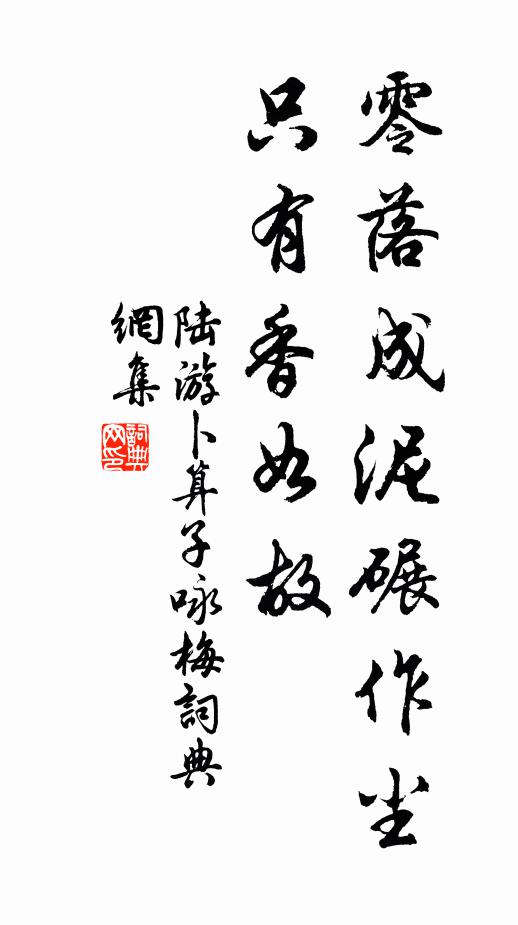 零落成泥碾作尘
只有香如故
陆游卜算子咏梅詞典
網集
詞典
网印